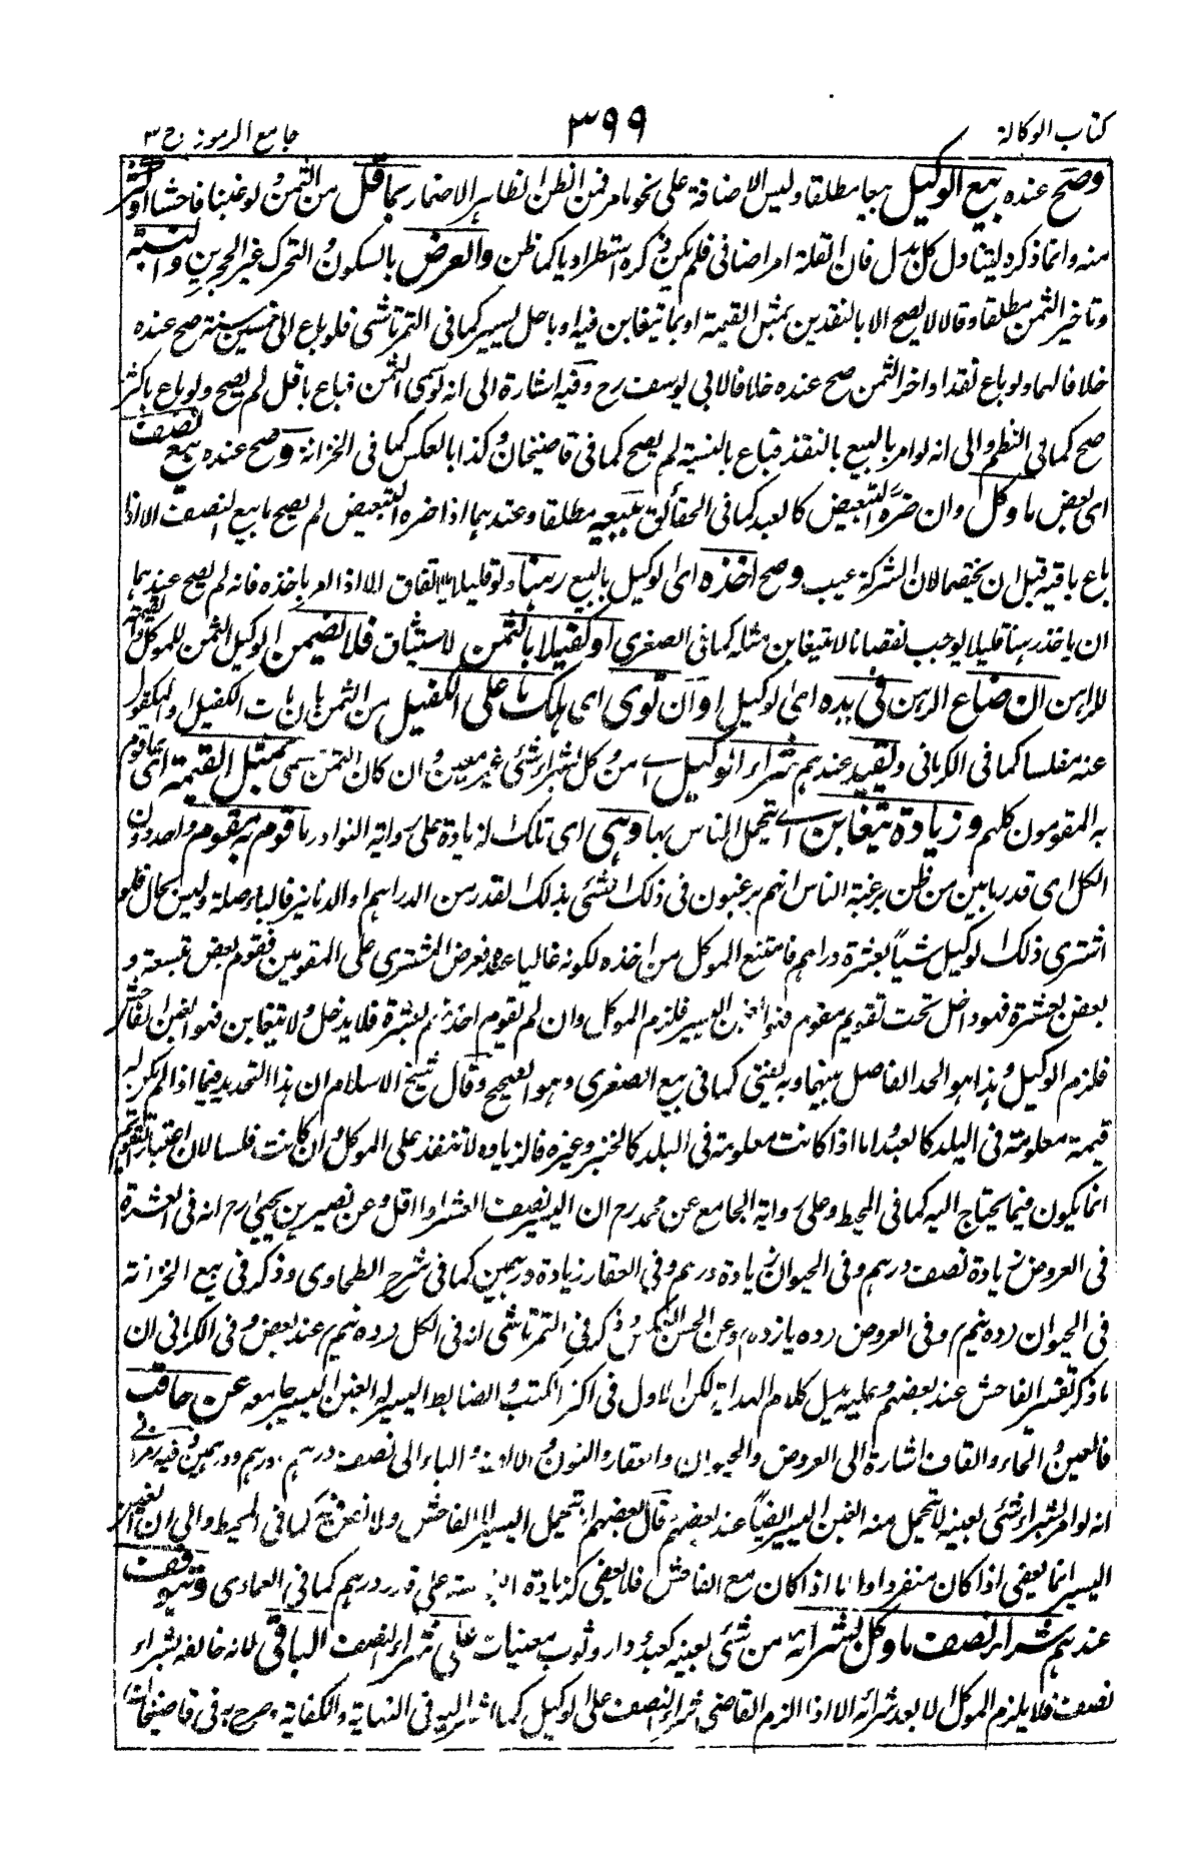 كتاب الوكالة
٣٩٩
جامع الرموز ج ٣
وصح عنده بيع الوكيل بيعا مطلقا وليس الاضافة على نحو ما مر فمن الظن الظاهر الاضمار بما قل من الثمن ولو غبنا فاحشا او كثر
منه وانما ذكره ليتناول كل بدل فان القلة امر اضافى فلم يكن ذكره استطراديا كما ظن والعرض بالسكون والتحرك غير الحجرين والنسية
وتاخير الثمن مطلقا وقالا لا يصح الا بالنقدين بمثل القيمة او بما يتغابن فيه او باجل يسير كما فى التمرتاشى فلو باع الى خمسين سنة صح عنده
خلافا لهما ولو باع نقدا واخر الثمن صح عنده خلافا لابى يوسف رح وفيه اشارة الى انه لو سمى الثمن فباع باقل لم يصح ولو باع باكثر
صح كما فى النظم والى انه لو امر بالبيع بالنقد فباع بالنسية لم يصح كما فى قاضيخان وكذا بالعكس كما فى الخزانة وصح عنده بيع نصف
اى بعض ما وكل وان ضره التبعيض كالعبد كما فى الحقائق ببيعه مطلقا وعندهما اذا ضره التبعيض لم يصح ما بيع النصف الا اذا
باع باقيه قبل ان يختصما لان الشركة عيب وصح اخذه اى الوكيل بالبيع رهنا ولو قليلا بالاتفاق الا اذا امر باخذه فانه لم يصح عندهما
ان ياخذ رهنا قليلا يوجب نقصانا لا يتغابن مثله كما فى الصغرى او كفيلا بالثمن لاستيثاق فلا يضمن الوكيل الثمن للموكل والقيمة
للراهن ان ضاع الرهن فى يده اى الوكيل او ان توى اى هلك ما على الكفيل من الثمن بان مات الكفيل او المكفول
عنه مفلسا كما فى الكرمانى وتقيد عندهم شراء الوكيل اى من وكل بشراء شئ غير معين وان كان الثمن سمى بمثل القيمة اى بما قوم
به المقومون كلهم وزيادة يتغابن اى يتحمل الناس بها وهى اى تلك الزيادة على رواية النوادر ما قوم به مقوم واحد دون
الكل اى قدر ما بين من ظن برغبة الناس انهم يرغبون فى ذلك الشئ بذلك القدر من الدراهم او الدنانير فالباء صلة وليس بحال فلو
اشترى ذلك الوكيل شيأ بعشرة دراهم فامتنع الموكل من اخذه لكونه غاليا عنده فعرض المشترى على المقومين فقوم بعض بتسعة و
بعض بعشرة فهو داخل تحت تقويم مقوم فهو الغبن اليسير فلزم الموكل وان لم يقوم احد منهم بعشرة فلا يدخل ولا يتغابن فهو الغبن الفاحش
فلزم الوكيل وهذا هو الحد الفاصل بينهما وبه يفتى كما فى بيع الصغرى وهو الصحيح وقال شيخ الاسلام ان هذا التحديد فيما اذا لم يكن له
قيمة معلومة فى البلد كالعبد واما اذا كانت معلومة فى البلد كالخبز وغيره فالزيادة لا تنفذ على الموكل وان كانت فلسا لان اعتبار التقويم
انما يكون فيما يحتاج اليه كما فى المحيط وعلى رواية الجامع عن محمد رح ان اليسير نصف العشر او اقل وعن نصير بن يحيى رح انه فى العشرة
فى العروض زيادة نصف درهم وفى الحيوان زيادة درهم وفى العقار زيادة درهمين كما فى شرح الطحاوى وذكر فى بيع الخزانة
فى الحيوان ده نيم وفى العروض ده يازده وعن الحسن العكس وذكر فى التمرتاشى انه فى الكل ده نيم عند بعض وفى الكرمانى ان
ما ذكر تقدير الفاحش عند بعضهم وعليه يدل كلام الهداية لكن الاول فى اكثر الكتب والضابط اليسير له الغبن اليسير جامعه عن حاقب
فالعين والحاء والقاف اشارة الى العروض والحيوان والعقار والنون والالف والباء الى نصف درهم ودرهم ودرهمين وفيه رمز الى
انه لو امر بشراء شئ بعينه لا يتحمل منه الغبن اليسير ايضا عند بعضهم وقال بعضهم يتحمل اليسير لا الفاحش كما فى المحيط والى ان الغبن
اليسير انما يعفى اذا كان منفردا واما اذا كان مع الفاحش فلا يعفى كزيادة على قدر درهم كما فى العمادى ويتوقف
عندهم شراء نصف ما وكل بشرائه من شئ بعينه كعبد ودار وثوب معينات على شراء النصف الباقى لانه خالفه بشراء
نصف فلا يلزم الموكل الا بعد شرائه الا اذا الزم القاضى شراء النصف على الوكيل كما اشار اليه فى النهاية والكفاية وصرح به فى قاضيخان